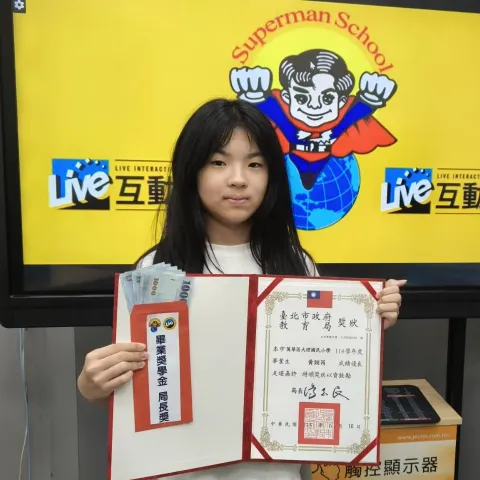 Superman School
LIVE INTERACTI
Live 互動
LIVE
Live 互動
1000
畢業獎學金 局長獎
臺北市政府
教育局 獎狀
本市萬華區大理國民小學 114學年度
畢業生
成績優良
足堪嘉許 特頒獎狀以資鼓勵
局長
中華民國
觸控顯示器